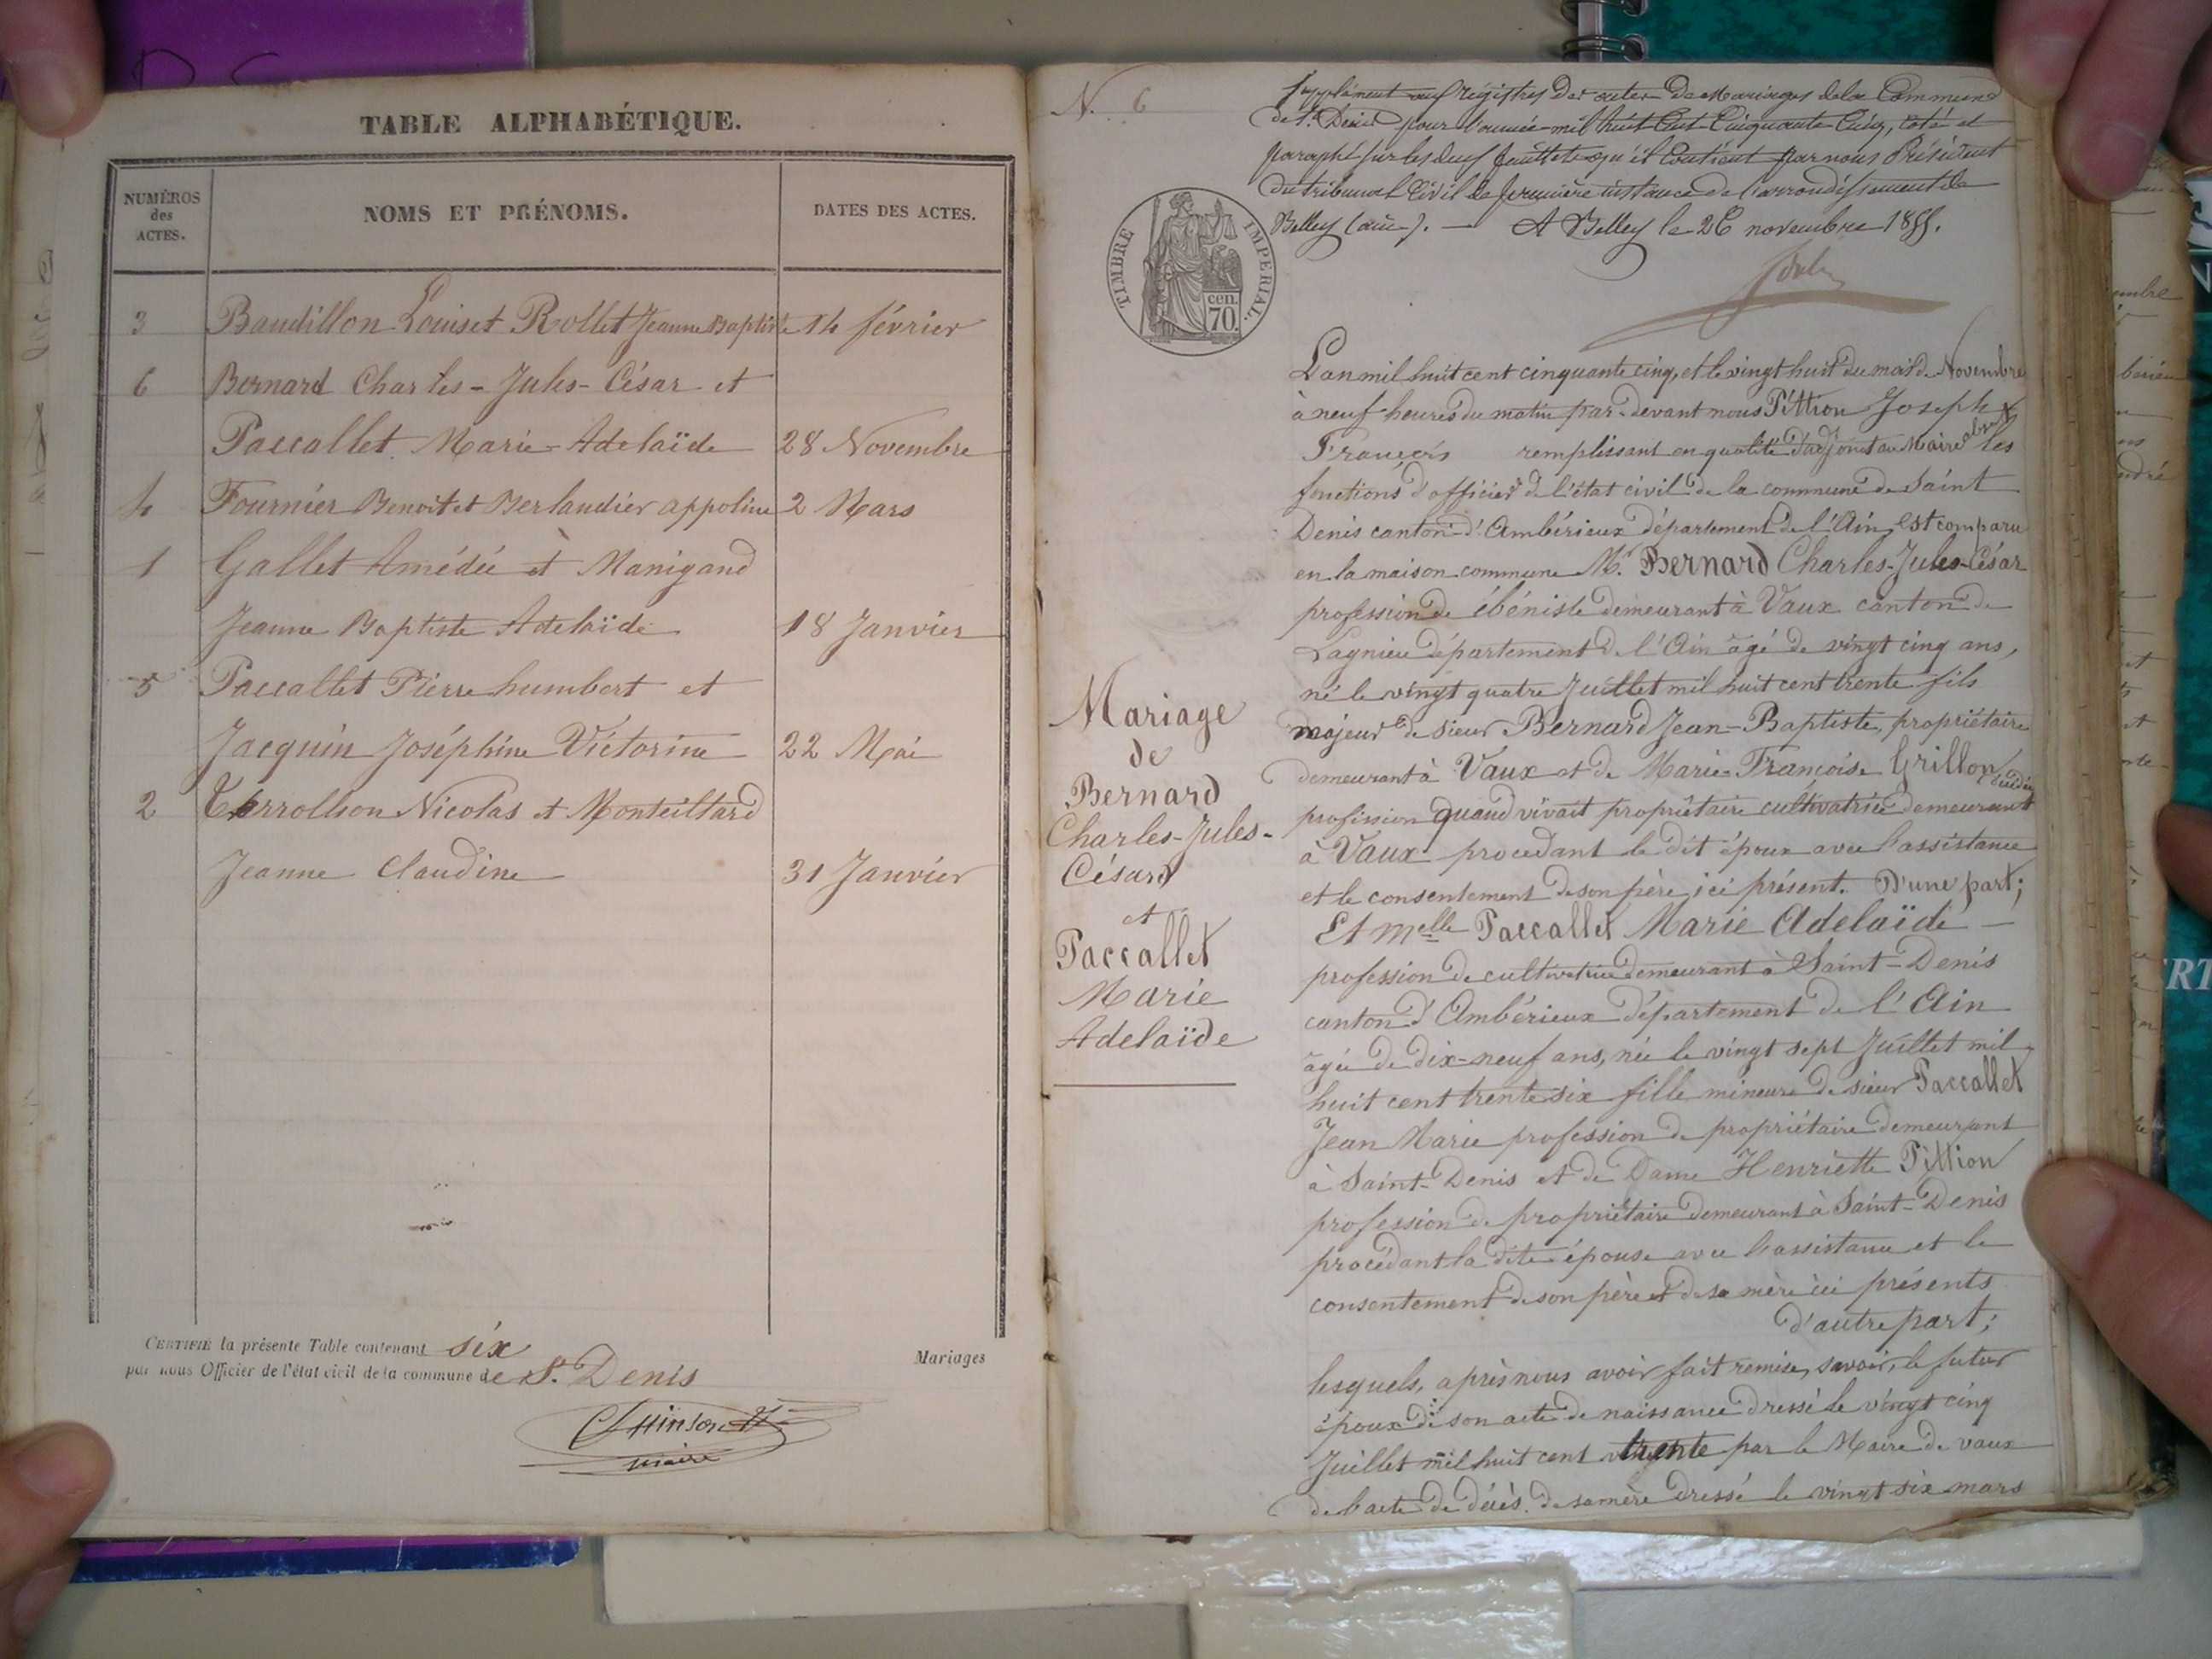 TABLE ALPHABÉTIQUE.
NUMÉROS
des
ACTES.
NOMS ET PRÉNOMS.
DATES DES ACTES.
3 Baudillon Louis et Rollet Jeanne Baptiste 14 février
6 Bernard Charles-Jules-César et
Paccallet Marie-Adelaïde 28 Novembre
4 Fournier Benoit et Berlaudier appoline 2 Mars
1 Gallet Amédée et Manigand
Jeanne Baptiste Adelaïde 18 Janvier
5 Paccallet Pierre humbert et
Jacquin Joséphine Victorine 22 Mai
2 Nicolas et Monteillard
Jeanne Claudine 31 Janvier
CERTIFIÉ la présente Table contenant six
par nous Officier de l'état civil de la commune de St. Denis
Mariages
maire
N. 6
Supplément aux régistres des actes de Mariages de la Commune
de St. Denis pour l'année mil huit Cent Cinquante Cinq, coté et
paraphé sur les deux feuillets qu'il Contient par nous Président
du tribunal Civil de première instance de l'arrondissement de
Belley (ain). — A Belley le 26 novembre 1855.
TIMBRE IMPERIAL.
cen.
70.
L'an mil huit cent cinquante cinq, et le vingt huit du mois de Novembre
à neuf heures du matin par-devant nous Pittion Joseph
François remplissant en qualité d'adjoint au Maire absent les
fonctions d'officier de l'état civil de la commune de Saint
Denis canton d'Ambérieux département de l'Ain, est comparu
en la maison commune Mr. Bernard Charles-Jules-César
profession de ébéniste demeurant à Vaux canton de
Lagnieu département de l'Ain âgé de vingt cinq ans,
né le vingt quatre Juillet mil huit cent trente fils
majeur de sieur Bernard Jean-Baptiste, propriétaire
demeurant à Vaux et de Marie-Françoise Grillon
profession quand vivait propriétaire cultivatrice demeurant
à Vaux procédant le dit époux avec l'assistance
et le consentement de son père ici présent. D'une part;
Mariage
de
Bernard
Charles-Jules-
César
et
Paccallet
Marie
Adelaïde
Et Melle Paccallet Marie Adelaïde —
profession de cultivatrice demeurant à Saint-Denis
canton d'Ambérieux département de l'Ain
âgée de dix-neuf ans, née le vingt sept Juillet mil
huit cent trente six fille mineure de sieur Paccallet
Jean Marie profession de propriétaire demeurant
à Saint-Denis et de Dame Henriette Pittion
profession de propriétaire demeurant à Saint-Denis
procédant la dite épouse avec l'assistance et le
consentement de son père et de sa mère ici présents
d'autre part;
lesquels, après nous avoir fait remise, savoir, le futur
époux de son acte de naissance dressé le vingt cinq
Juillet mil huit cent trente par le Maire de vaux
de l'acte de décès de sa mère dressé le vingt six mars